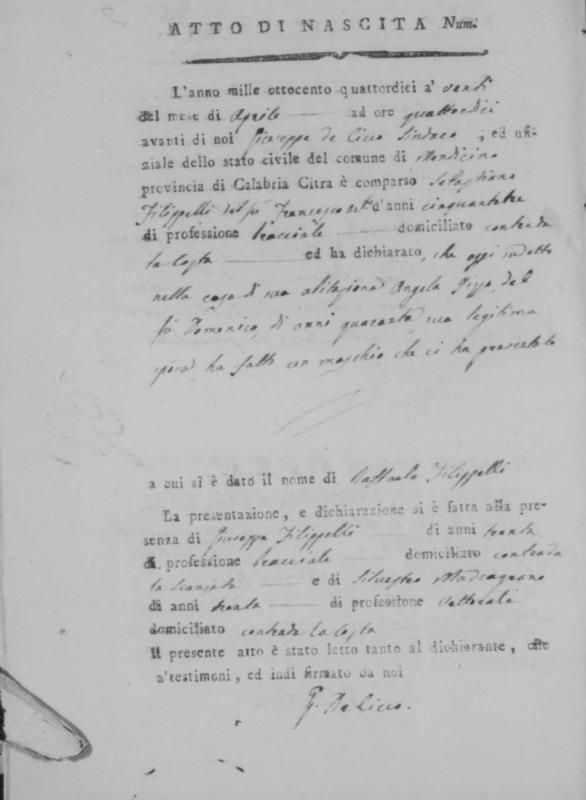 ATTO DI NASCITA Num.
L'anno mille ottocento quattordici a' venti
del mese di Aprile ad ore quattordici
avanti di noi Giuseppe de Cicco Sindaco, ed uffi-
ziale dello stato civile del comune di Mendicino
provincia di Calabria Citra è comparso Sebastiano
Filippelli del fù Francesco d'anni cinquantatre
di professione bracciale domiciliato contrada
la Costa ed ha dichiarato, che oggi sudetto
nella casa di sua abitazione Angela Pizzo del
fù Domenico, di anni quaranta sua legitima
sposa, ha fatto un maschio, che ci ha presentato
a cui si è dato il nome di Raffaele Filippelli
La presentazione, e dichiarazione si è fatta alla pre-
senza di Giuseppe Filippelli di anni trenta
di professione bracciale domiciliato contrada
la e di Silvestro
di anni trenta di professione Vatticale
domiciliato contrada la Costa
Il presente atto è stato letto tanto al dichiarante, che
a'testimoni, ed indi firmato da noi
G. DeCicco.